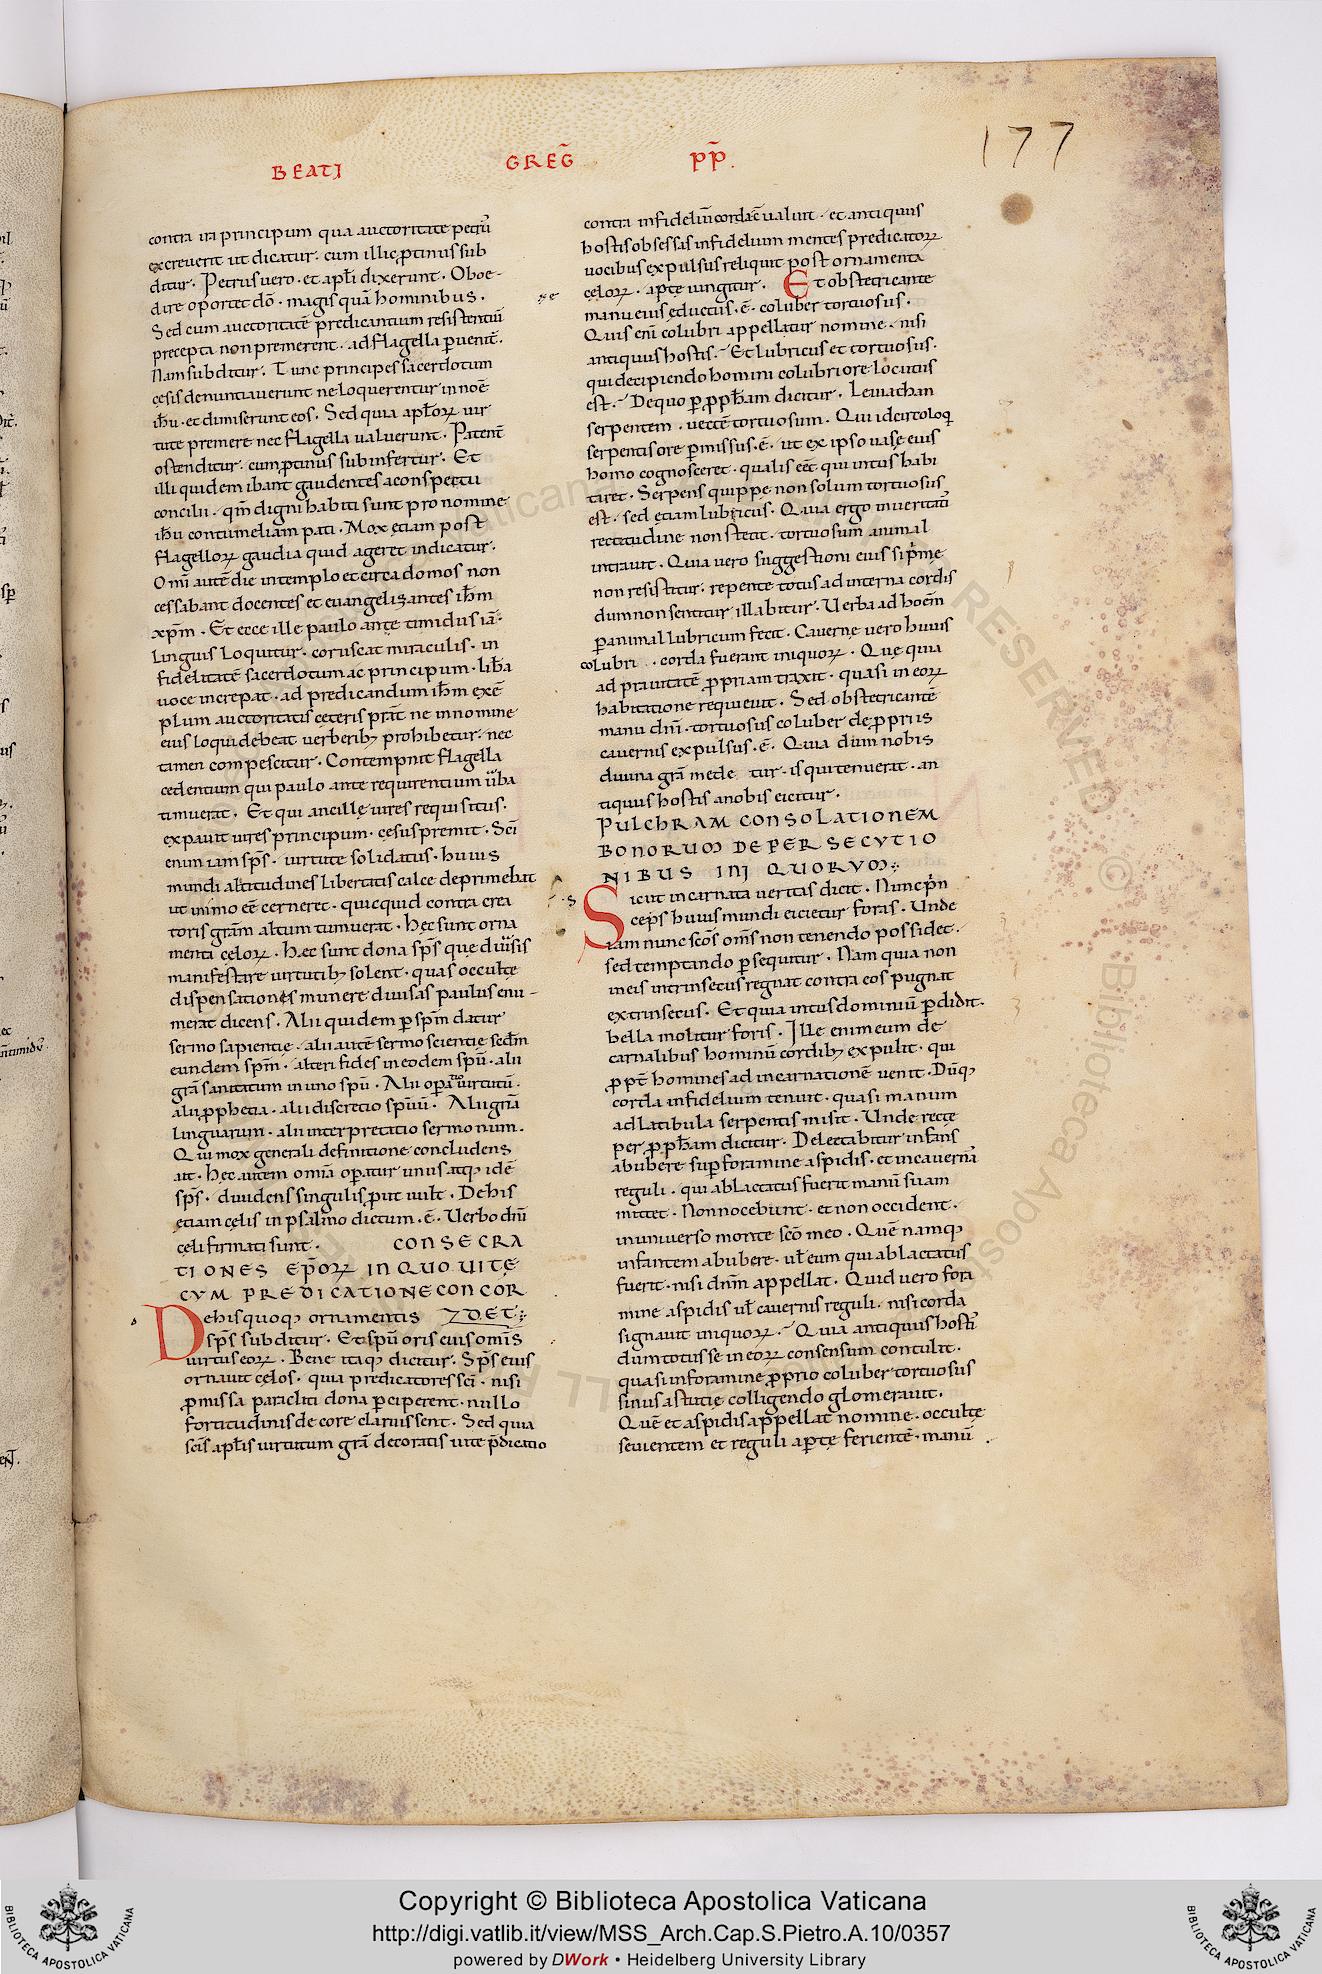 BEATI GREḠ PP̄.
177
contra ira principum qua auctoritate petrus
excreverit ut dicatur. cum illic ptinus sub
ditur. Petrus vero. et apłi dixerunt. Oboe-
dire oportet dō. magis quā hominibus.
Sed cum auctoritatē predicantium resistentiū
precepta non premerent. ad flagella pvenit̄.
Nam subditur. Tunc principes sacerdotum
cesis denuntiaverunt ne loquerentur in noē
ih̄u. et dimiserunt eos. Sed quia apłoꝝ vir
tute premere nec flagella valuerunt. Patent̄
ostenditur. cum ptinus subinfertur. Et
illi quidem ibant gaudentes a conspectu
concilii. qm̄ digni habiti sunt pro nomine
ih̄u contumeliam pati. Mox etiam post
flagelloꝝ gaudia quid ageret indicatur.
Omī autē die in templo et circa domos non
cessabant docentes et evangelizantes ih̄m
xp̄m. Et ecce ille paulo ante timidus iā
linguis loquitur. coruscat miraculis. in
fidelitatē sacerdotum ac principum. lib̄a
voce increpat. ad predicandum ih̄m exē
plum auctoritatis ceteris prāt ne in nomine
eius loqui debeat verberibꝫ prohibetur. nec
tamen compescitur. Contempnit flagella
cedentium qui paulo ante requirentium v̄ba
timuerat. Et qui ancillę vires requisitus.
expavit vires principum. cesus premit. Sci
enim iam sps̄. virtute solidatus. huius
mundi altitudines libertatis calce deprimebat
ut in imo eē cerneret. quicquid contra crea
toris grām altum tumuerat. Hec sunt orna
menta cęloꝝ. Hec sunt dona sps̄ que dīvsis
manifestare virtutibꝫ solent. quas occulte
dispensationes munere divisas paulus enu-
merat dicens. Alii quidem p spm̄ datur
sermo sapientię. alii autē sermo scientię scdm̄
eundem spm̄. alteri fides in eodem spū. alii
grā sanitatum in uno spū. Alii opatio virtutū.
alii pphetia. alii discretio spūū. Alii grā
linguarum. alii interpretatio sermonum.
Qui mox generali definitione concludens
ait. Hec autem omīa opatur unus atqꝫ idē
sps̄. dividens singulis put vult. De his
etiam cęlis in psalmo dictum. ē. Verbo dn̄i
cęli firmati sunt. CONSECRA
TIONES EP̄OꝜ IN QUO VITĘ
CVM PREDICATIONE CONCOR
De his quoqꝫ ornamentis ZDET:
sps̄ subditur. Et spū oris eius om̄is
virtus eoꝝ. Bene itaqꝫ dicitur. Sps̄ eius
ornavit cęlos. quia predicatores sci. nisi
pmissa paracliti dona pciperent. nullo
fortitudinis decore claruissent. Sed quia
scis apłis virtutum grā decoratis vite p̄dicatio
contra infideliū corda ē valuit. et antiquus
hostis obsessas infidelium mentes predicatoꝝ
vocibus expulsus reliquit post ornamenta
cęloꝝ. apte iungitur. Et obstetricante
manu eius eductus. ē. coluber tortuosus.
Quis eni colubri appellatur nomine. nisi
antiquus hostis. Et lubricus et tortuosus.
qui decipiendo homini colubri ore locutus
est. De quo p pph̄am dicitur. Leviathan
serpentem. vectē tortuosum. Qui idcirco loq
serpentis ore pmissus. ē. ut ex ipso vasę eius
homo cognosceret. qualis eēt qui intus habi
taret. Serpens quippe non solum tortuosus
est. sed etiam lubricus. Quia ergo in veritatis
rectitudine non stetit. tortuosum animal
intravit. Quia vero suggestioni eius si p̄me
non resistitur. repente totus ad interna cordis
dum non sentitur illabitur. Verba ad hoēm
p animal lubricum fecit. Cavernę vero huius
colubri. corda fuerant iniquoꝝ. Que quia
ad pravitatē ppriam traxit. quasi in eoꝝ
habitatione requievit. Sed obstetricantē
manu dn̄i. tortuosus coluber de ppriis
cavernis expulsus. ē. Quia dum nobis
divina grā mede tur. is qui tenuerat. an
tiquus hostis a nobis eicitur.
PULCHRAM CONSOLATIONEM
BONORUM DE PERSECVTIO
NIBUS INIQUORVM:
Sicut incarnata veritas dicit. Nunc prin
ceps huius mundi eicietur foras. Unde
iam nunc scōs om̄s non tenendo possidet.
sed temptando psequitur. Nam quia non
in eis intrinsecus regnat contra eos pugnat
extrinsecus. Et quia intus dominiū pdidit.
bella molitur foris. Ille enim eum de
carnalibus hominū cordibꝫ expulit. qui
ppt̄ homines ad incarnationē venit. Dūqꝫ
corda infidelium tenuit. quasi manum
ad latibula serpentis misit. Unde recte
per pph̄am dicitur. Delectabitur infans
ab ubere sup foramine aspidis. et in caverna
reguli. qui ablactatus fuerit manū suam
mittet. Non nocebunt. et non occident.
in universo monte scō meo. Quē namqꝫ
infantem ab ubere. uł eum qui ablactatus
fuerit. nisi dn̄m appellat. Quid vero fora
mine aspidis uł cavernis reguli. nisi corda
signavit iniquoꝝ. Quia antiquus hostis
dum totus se in eoꝝ consensum contulit.
quasi in foramine pprio coluber tortuosus
sinus astutię colligendo glomeravit.
Quē et aspidis appellat nomine. occulte
sevientem et reguli apte ferientē. manū
Copyright © Biblioteca Apostolica Vaticana
http://digi.vatlib.it/view/MSS_Arch.Cap.S.Pietro.A.10/0357
powered by DWork • Heidelberg University Library
BIBLIOTECA APOSTOLICA VATICANA
BIBLIOTECA APOSTOLICA VATICANA